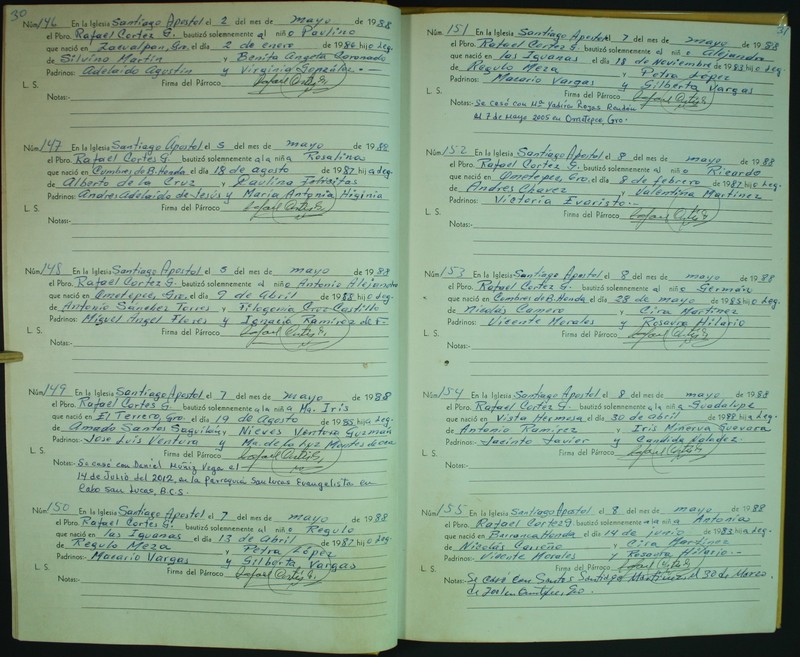 30
Núm. 146 En la Iglesia Santiago Apostol el 2 del mes de mayo de 1988
el Pbro. Rafael Cortez G. bautizó solemnemente al niño Paulino
que nació en Zacualpan, Gro. el día 2 de enero de 1986 hijo Leg.
de Silvino Martin y Benita Angela Coronado
Padrinos: Adelaido Agostin y Virginia González.-
L. S. Firma del Párroco Rafael Cortés G.
Notas:-
Núm. 147 En la Iglesia Santiago Apostol el 5 del mes de mayo de 1988
el Pbro. Rafael Cortes G. bautizó solemnemente a la niña Rosalina
que nació en Cumbres de B. Honda el día 18 de agosto de 1987 hija Leg.
de Alberto de la Cruz y Paulina
Padrinos: Andres Adelaido de Jesús y Maria Antonia Higinia
L. S. Firma del Párroco Rafael Cortés G.
Notas:-
Núm. 148 En la Iglesia Santiago Apostol el 5 del mes de mayo de 1988
el Pbro. Rafael Cortez G. bautizó solemnemente al niño Antonio Alejandro
que nació en Ometepec, Gro. el día 9 de Abril de 1988 hijo Leg.
de Antonio Sánchez Torres y Filogonia Cruz Castillo
Padrinos: Miguel Angel Flores y Ignacia Ramirez de F.-
L. S. Firma del Párroco Rafael Cortés G.
Notas:-
Núm. 149 En la Iglesia Santiago Apostol el 7 del mes de mayo de 1988
el Pbro. Rafael Cortes G. bautizó solemnemente a la niña Ma. Iris
que nació en El Terrero, Gro. el día 19 de Agosto de 1985 hija Leg.
de Amado Santos y Nieves Ventura Guzmán
Padrinos: Jose Luis Ventura y Ma. de la Luz Montes de oca
L. S. Firma del Párroco Rafael Cortés G.
Notas:- Se casó con Daniel Muñiz Vega el
14 de Julio del 2012, en la parroquia San Lucas Evangelista en
Cabo San Lucas, B.C.S.
Núm. 150 En la Iglesia Santiago Apostol el 7 del mes de mayo de 1988
el Pbro. Rafael Cortes G. bautizó solemnemente al niño Regulo
que nació en las Iguanas el día 13 de Abril de 1987 hijo Leg.
de Regulo Meza y Petra López
Padrinos: Macario Vargas y Gilberta Vargas
L. S. Firma del Párroco Rafael Cortés G.
Notas:-
31
Núm. 151 En la Iglesia Santiago Apostol el 7 del mes de mayo de 1988
el Pbro. Rafael Cortez G. bautizó solemnemente al niño Alejandro
que nació en las Iguanas el día 18 de Noviembre de 1983 hijo Leg.
de Regulo Meza y Petra López
Padrinos: Macario Vargas y Gilberta Vargas
L. S. Firma del Párroco Rafael Cortés G.
Notas:- Se casó con Ma. Yadira Rojas Rendón
el 7 de Mayo 2005 en Ometepec, Gro.
Núm. 152 En la Iglesia Santiago Apostol el 8 del mes de mayo de 1988
el Pbro. Rafael Cortez G. bautizó solemnemente al niño Ricardo
que nació en Ometepec, Gro. el día 8 de febrero de 1987 hijo Leg.
de Andres Chavez y Valentina Martinez
Padrinos: Victoria Evaristo.-
L. S. Firma del Párroco Rafael Cortés G.
Notas:-
Núm. 153 En la Iglesia Santiago Apostol el 8 del mes de mayo de 1988
el Pbro. Rafael Cortez G. bautizó solemnemente al niño Germán
que nació en Cumbres de B. Honda el día 28 de mayo de 1985 hijo Leg.
de Nicolás y Cira Martinez
Padrinos: Vicente Morales y Rosaura Hilario
L. S. Firma del Párroco Rafael Cortés G.
Notas:-
Núm. 154 En la Iglesia Santiago Apostol el 8 del mes de mayo de 1988
el Pbro. Rafael Cortez G. bautizó solemnemente a la niña Guadalupe
que nació en Vista Hermosa el día 30 de abril de 1988 hija Leg.
de Antonio Ramirez y Iris Minerva Guevara
Padrinos: Jacinto Javier y Candida
L. S. Firma del Párroco Rafael Cortés G.
Notas:-
Núm. 155 En la Iglesia Santiago Apostol el 8 del mes de mayo de 1988
el Pbro. Rafael Cortez G. bautizó solemnemente a la niña Antonia
que nació en Barranca Honda el día 14 de junio de 1983 hija Leg.
de Nicolás y Cira Martinez
Padrinos: Vicente Morales y Rosaura Hilario.-
L. S. Firma del Párroco Rafael Cortés G.
Notas: Se casó con Santos Santiago Martinez el 30 de Marzo,
de en Ometepec, Gro.